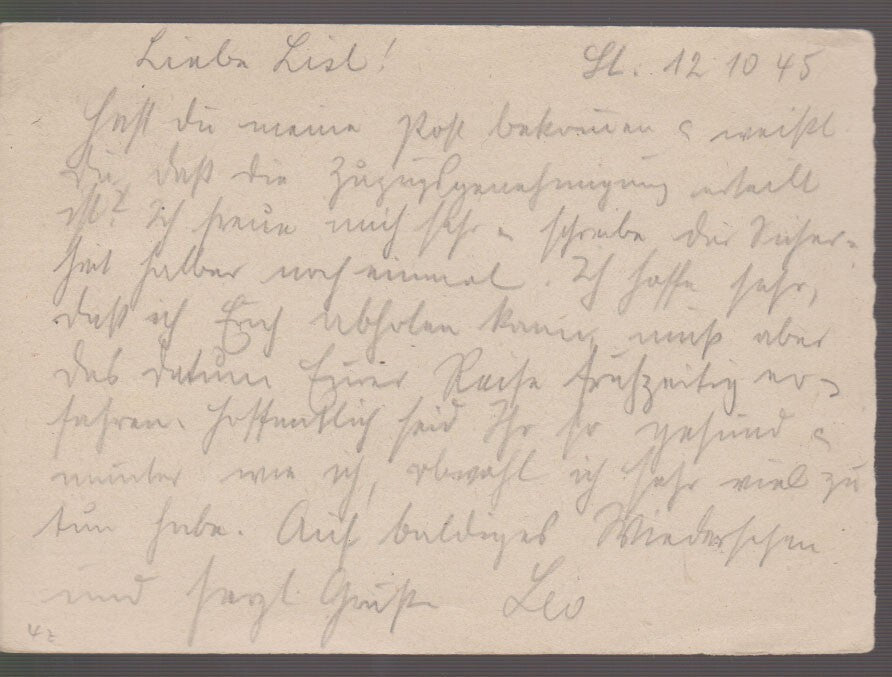 Liebe Lisl! St. 12 10 45
Hast du meine Post bekommen u weißt
Du, daß die Zuzugsgenehmigung erteilt
ist? Ich freue mich sehr u schreibe der Sicher-
heit halber noch einmal. Ich hoffe sehr,
daß ich Euch abholen kann, muß aber
das Datum Eurer Reise frühzeitig er-
fahren. Hoffentlich seid Ihr so gesund u
munter wie ich, obwohl ich sehr viel zu
tun habe. Auf baldiges Wiedersehen
und herzl Grüße Leo